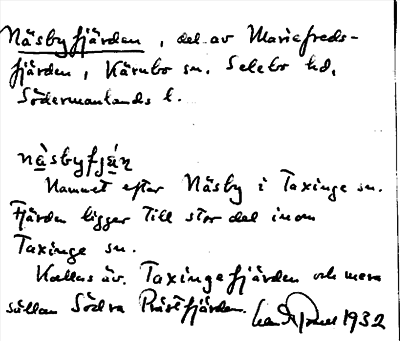 Näsbyfjärden, del av Mariefreds-
fjärden, Kärnbo sn. Selebo hd,
Södermanlands l.
näsbyfjän
Namnet efter Näsby i Taxinge sn.
Fjärden ligger till stor del inom
Taxinge sn.
Kallas äv. Taxingefjärden och mera
sällan Södra Prästfjärden.
1932